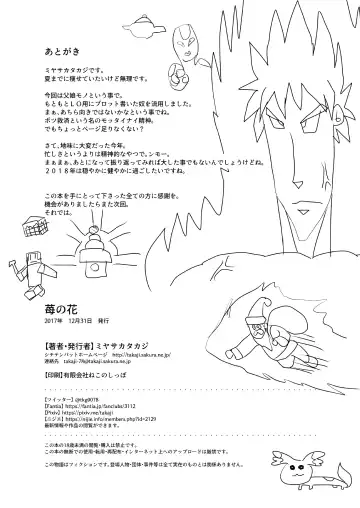 あとがき
ミヤサカタカジです。
夏までに痩せていたいけど無理です。
今回は父娘モノという事で。
もともとLO用にプロット書いた奴を流用しました。
まぁ、あちら向きではないかなという事でね。
ボツ救済という名のモッタイナイ精神。
でもちょっとページ足りなくない?
さて、地味に大変だった今年。
忙しさというよりは精神的なやつで。ンモー。
まぁまぁ、あとになって振り返ってみれば大した事でもないんでしょうけどね。
2018年は穏やかに健やかに過ごしたいですね。
この本を手にとって下さった全ての方に感謝を。
機会がありましたらまた次回。
それでは。
苺の花
2017年 12月31日 発行
【著者・発行者】ミヤサカタカジ
シチテンバットホームページ http://takaji.sakura.ne.jp/
連絡先 takaji-78@takaji.sakura.ne.jp
【印刷】有限会社ねこのしっぽ
【ツイッター】@tkg9078
【Fantia】https://fantia.jp/fanclubs/3112
【Pixiv】https://pixiv.me/takaji
【ニジエ】https://nijie.info/members.php?id=2129
最新情報や作品の閲覧ができます。
この本の18歳未満の閲覧・購入は禁止です。
この本の無断での使用・転用・再配布・インターネット上へのアップロードは厳禁です。
この物語はフィクションです。登場人物・団体・事件等は全て実在のものとは関係ありません。